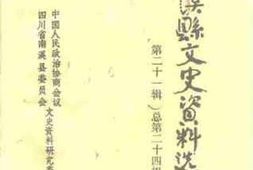 溪縣文史資料选
第二十一辑（总第二十四辑
中国人民政治协商会议
四川省南溪县委员会
文史资料研究